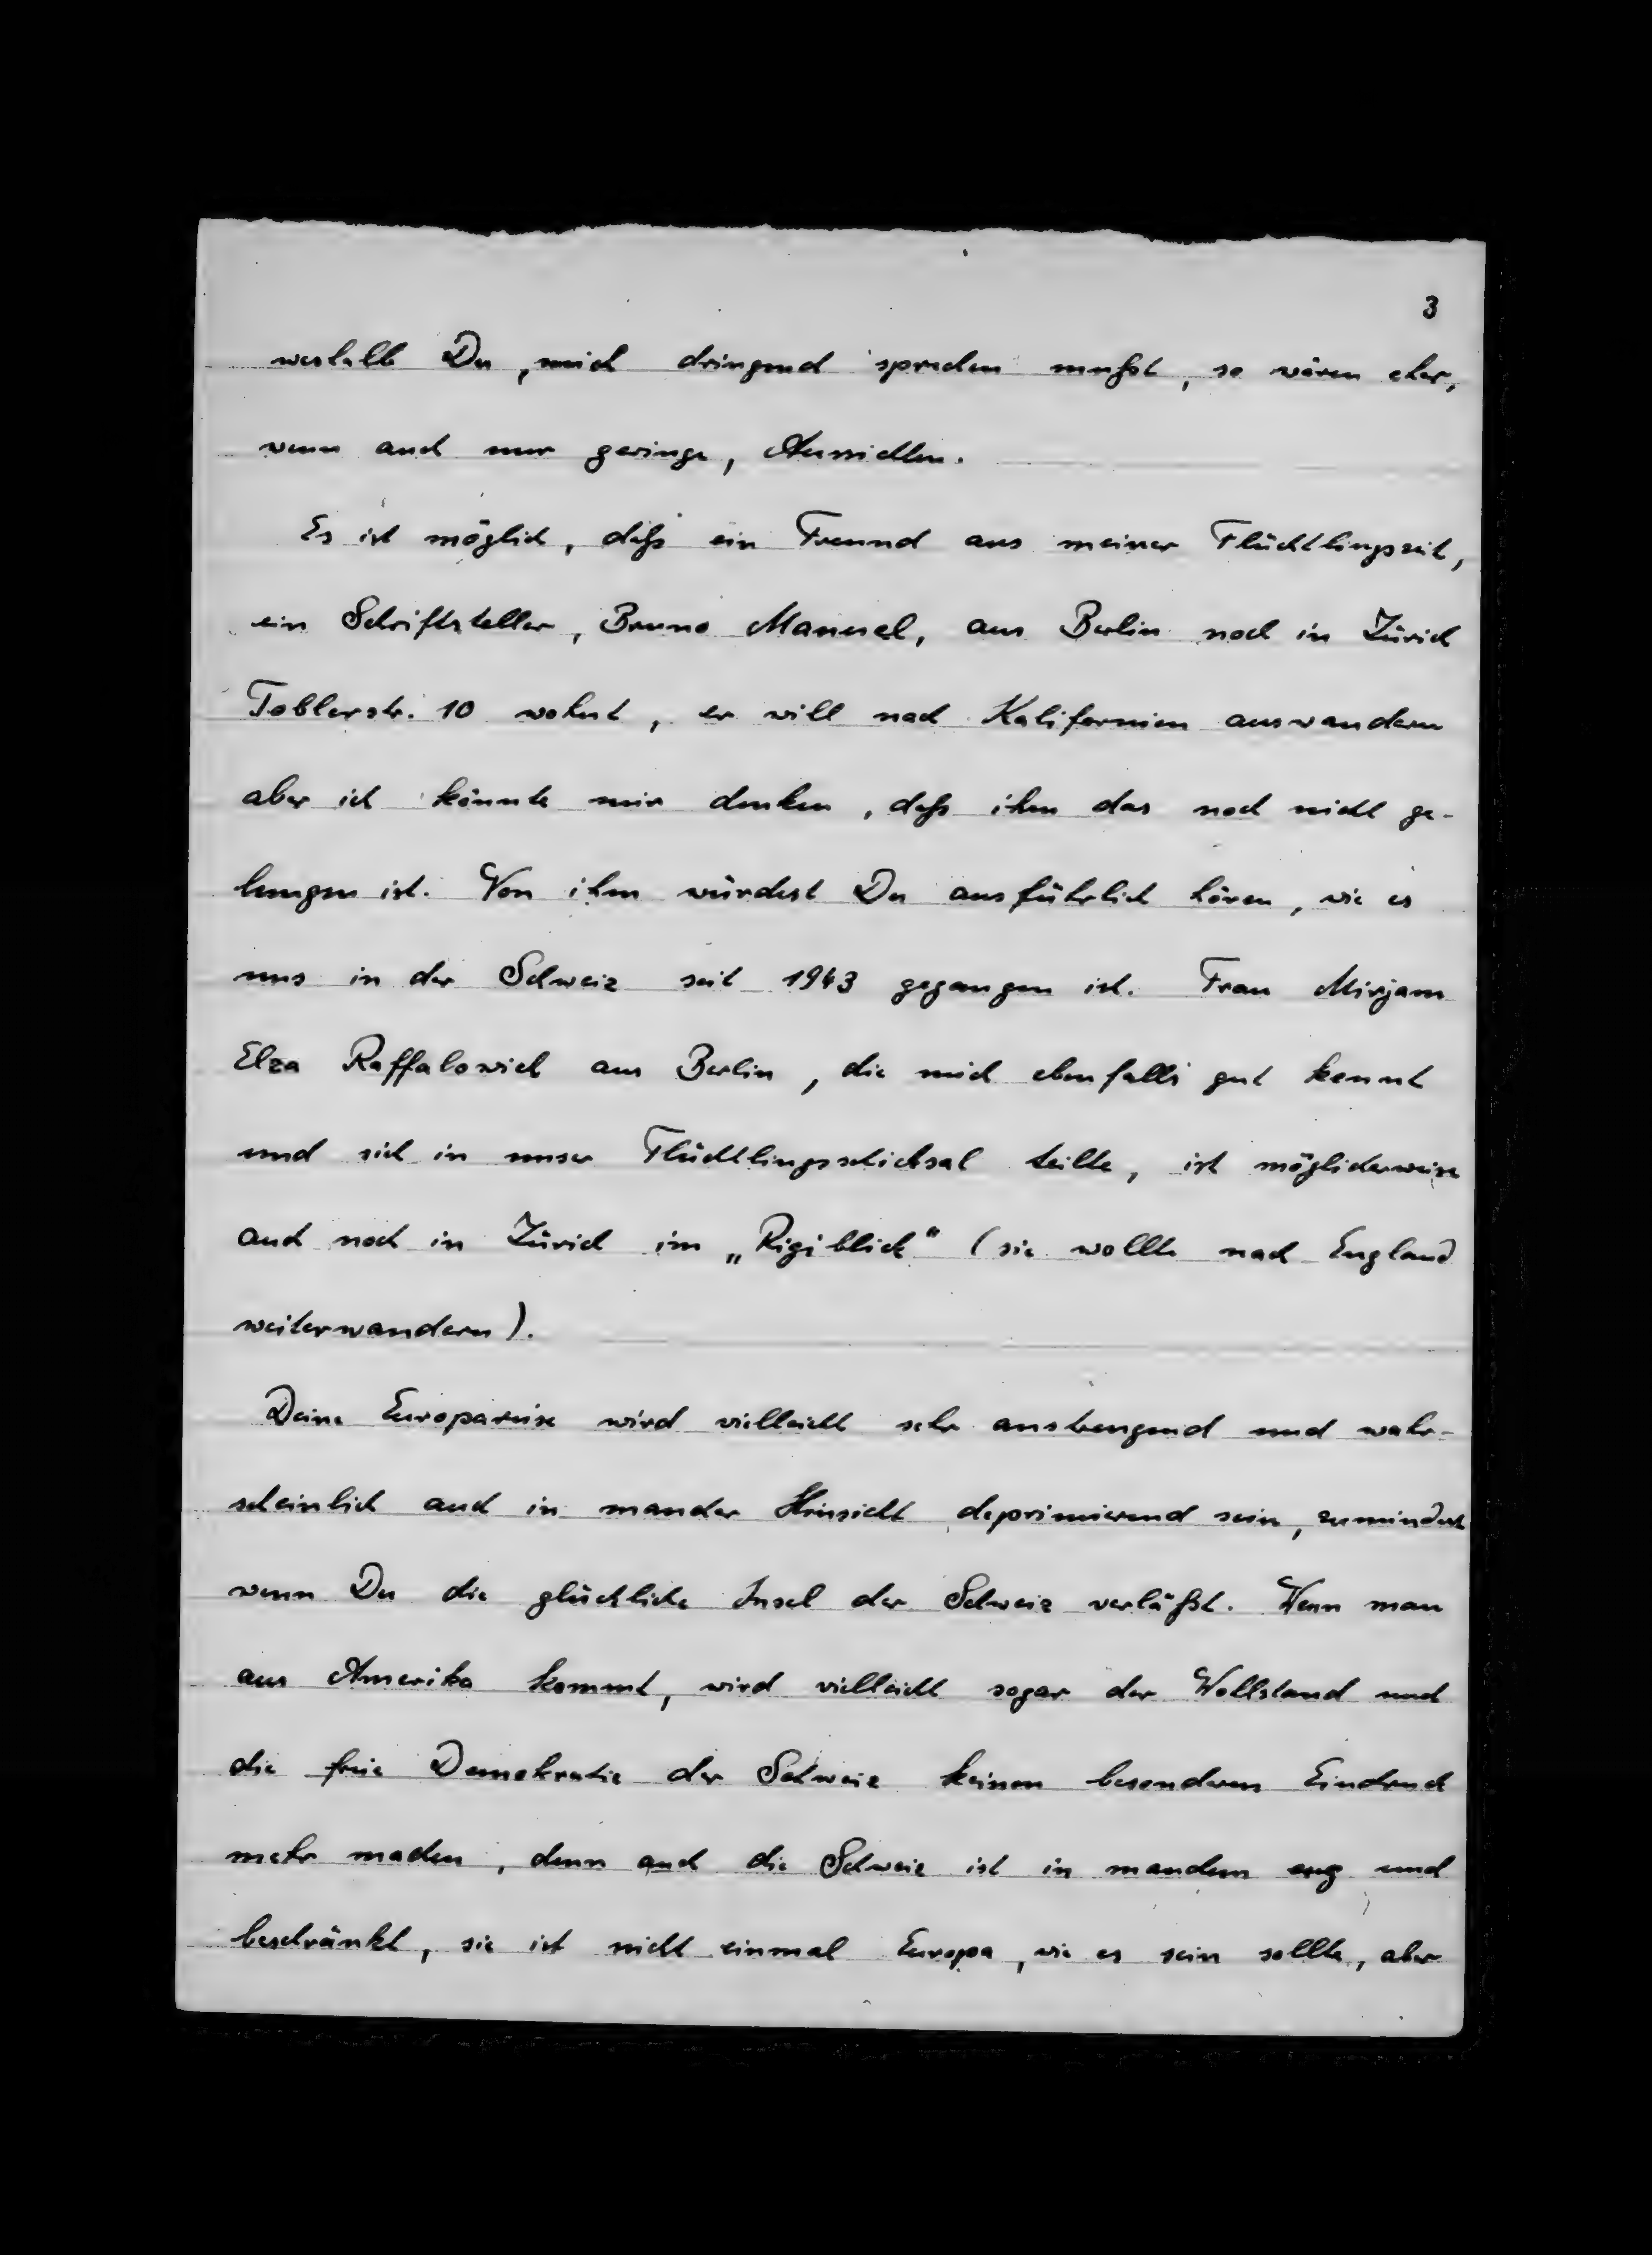 3
weshalb Du mich dringend sprechen mußt, so wären eher,
wenn auch nur geringe, Aussichten.
Es ist möglich, daß ein Freund aus meiner Flüchtlingszeit,
ein Schriftsteller, Bruno Manuel, aus Berlin noch in Zürich
Toblerstr. 10 wohnt, er will nach Kalifornien auswandern
aber ich könnte mir denken, daß ihm das noch nicht ge-
lungen ist. Von ihm würdest Du ausführlich hören, wie es
uns in der Schweiz seit 1943 gegangen ist. Frau Mirjam
Elza Raffalowich aus Berlin, die mich ebenfalls gut kennt
und sich in unser Flüchtlingsschicksal teilte, ist möglicherweise
auch noch in Zürich im „Rigiblick" (sie wollte nach England
weiterwandern).
Deine Europareise wird vielleicht sehr anstrengend und wahr-
scheinlich auch in mancher Hinsicht deprimierend sein, zumindest
wenn Du die glückliche Insel der Schweiz verläßt. Wenn man
aus Amerika kommt, wird vielleicht sogar der Wohlstand und
die freie Demokratie der Schweiz keinen besonderen Eindruck
mehr machen, denn auch die Schweiz ist in manchem eng und
beschränkt, sie ist nicht einmal Europa, wie es sein sollte, aber